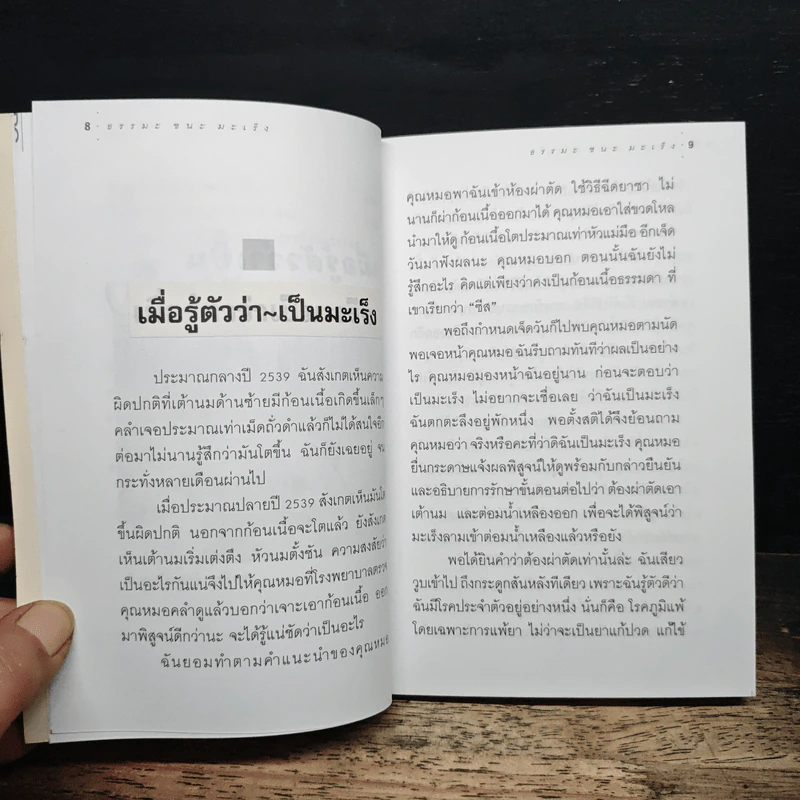 8 ธรรมะ ชนะ มะเร็ง
เมื่อรู้ตัวว่า~เป็นมะเร็ง
ประมาณกลางปี 2539 ฉันสังเกตเห็นความ
ผิดปกติที่เต้านมด้านซ้ายมีก้อนเนื้อเกิดขึ้นเล็กๆ
คลำเจอประมาณเท่าเม็ดถั่วดำแล้วก็ไม่ได้สนใจอีก
ต่อมาไม่นานรู้สึกว่ามันโตขึ้น ฉันก็ยังเฉยอยู่ จน
กระทั่งหลายเดือนผ่านไป
เมื่อประมาณปลายปี 2539 สังเกตเห็นมันโต
ขึ้นผิดปกติ นอกจากก้อนเนื้อจะโตแล้ว ยังสังเกต
เห็นเต้านมเริ่มเต่งตึง หัวนมตั้งชัน ความสงสัยว่า
เป็นอะไรกันแน่จึงไปให้คุณหมอที่โรงพยาบาลตรวจ
คุณหมอคลำดูแล้วบอกว่าเจาะเอาก้อนเนื้อ ออก
มาพิสูจน์ดีกว่านะ จะได้รู้แน่ชัดว่าเป็นอะไร
ฉันยอมทำตามคำแนะนำของคุณหมอ
ธรรมะ ชนะ มะเร็ง 9
คุณหมอพาฉันเข้าห้องผ่าตัด ใช้วิธีฉีดยาชา ไม่
นานก็ผ่าก้อนเนื้อออกมาได้ คุณหมอเอาใส่ขวดโหล
นำมาให้ดู ก้อนเนื้อโตประมาณเท่าหัวแม่มือ อีกเจ็ด
วันมาฟังผลนะ คุณหมอบอก ตอนนั้นฉันยังไม่
รู้สึกอะไร คิดแต่เพียงว่าคงเป็นก้อนเนื้อธรรมดา ที่
เขาเรียกว่า “ซีส”
พอถึงกำหนดเจ็ดวันก็ไปพบคุณหมอตามนัด
พอเจอหน้าคุณหมอ ฉันรีบถามทันทีว่าผลเป็นอย่าง
ไร คุณหมอมองหน้าฉันอยู่นาน ก่อนจะตอบว่า
เป็นมะเร็ง ไม่อยากจะเชื่อเลย ว่าฉันเป็นมะเร็ง
ฉันตกตะลึงอยู่พักหนึ่ง พอตั้งสติได้จึงย้อนถาม
คุณหมอว่า จริงหรือคะที่ว่าดิฉันเป็นมะเร็ง คุณหมอ
ยื่นกระดาษแจ้งผลพิสูจน์ให้ดูพร้อมกับกล่าวยืนยัน
และอธิบายการรักษาขั้นตอนต่อไปว่า ต้องผ่าตัดเอา
เต้านม และต่อมน้ำเหลืองออก เพื่อจะได้พิสูจน์ว่า
มะเร็งลามเข้าต่อมน้ำเหลืองแล้วหรือยัง
พอได้ยินคำว่าต้องผ่าตัดเท่านั้นล่ะ ฉันเสียว
วูบเข้าไป ถึงกระดูกสันหลังทีเดียว เพราะฉันรู้ตัวดีว่า
ฉันมีโรคประจำตัวอยู่อย่างหนึ่ง นั่นก็คือ โรคภูมิแพ้
โดยเฉพาะการแพ้ยา ไม่ว่าจะเป็นยาแก้ปวด แก้ไข้